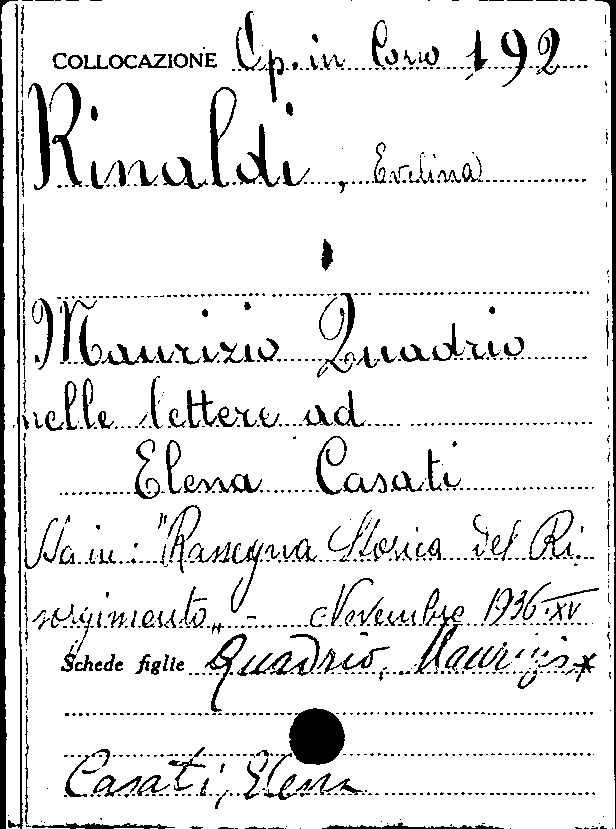 COLLOCAZIONE Op. in Corso 192
Rinaldi, Evelina
Maurizio Quadrio
nelle lettere ad
Elena Casati
Sta in: "Rassegna Storica del Ri
sorgimento„ - Novembre 1936-XV
Schede figlie Quadrio, Maurizio *
Casati, Elena